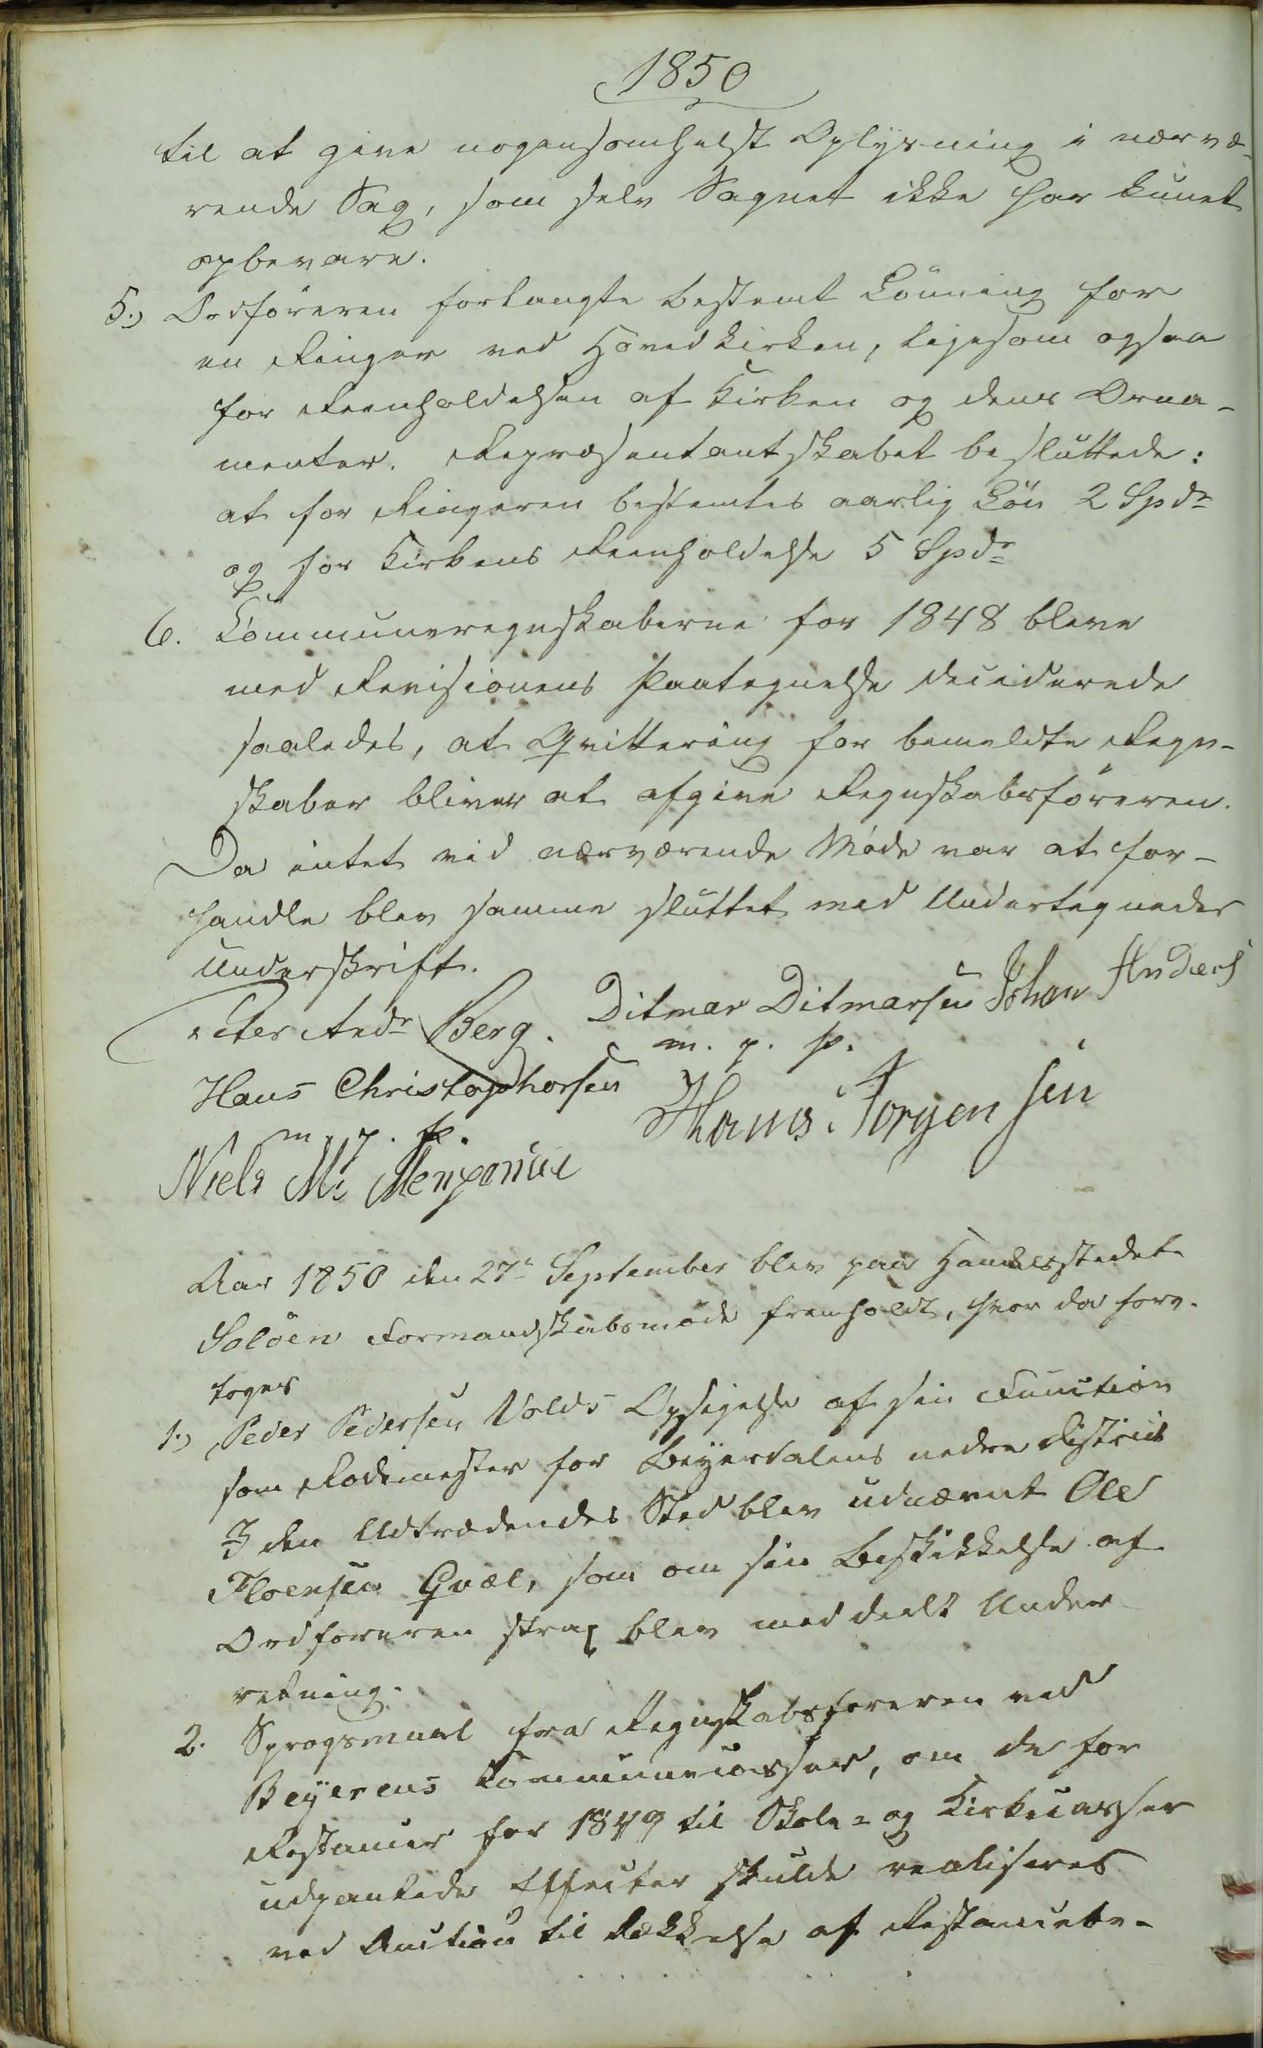 1850
til at give nogensomhelst Oplysning i nærvæ-
rende Sag, som selv Sagnet ikke har kunet
opbevare.
5.) Ordföreren forlangte bestemt Lönning for
en Ringer ved Hovedkirken, ligesom ogsaa
for Reenholdelsen af Kirken og dens Orna-
menter. Repræsentantskabet besluttede:
at for Ringeren bestemtes aarlig Lön 2 Spdr
og for Kirkens Reenholdelse 5 Spdr
6. Communeregnskaberne for 1848 bleve
med Revisionens Paategnelse deciderede
saaledes, at Qvittering for bemeldte Regn-
skaber bliver at afgive Regnskabsföreren.
Da intet ved nærværende Möde var at for-
handle blev samme sluttet med Undertegnedes
Underskrift.
Peter Andr Berg. Ditmar Ditmarsen Johan Anders
m. p. p.
Hans Christophorsen Hans Jörgensen
m. p. p.
Niels Mi
Aar 1850 den 27de September blev paa Handelsstedet
Solöen Formandskabsmöde fremholdt, hvor da fore-
toges
1.) Peder Pedersen Volds Opsigelse af sin Function
som Rodemester for Beyerdalens nedre District
I den Udtrædendes Sted blev udnævnt Ole
Floensen Qvæl, som om sin Beskikkelse af
Ordföreren strax blev meddeelt Under-
retning.
2. Sprogsmaal fra Regnskabsföreren ved
Beyerens Communecasser, om de for
Restancer for 1849 til Skole- og Kirkecasser
udpantede Effecter skulde realiseres
ved Auction til Dækkelse af Restancebe-